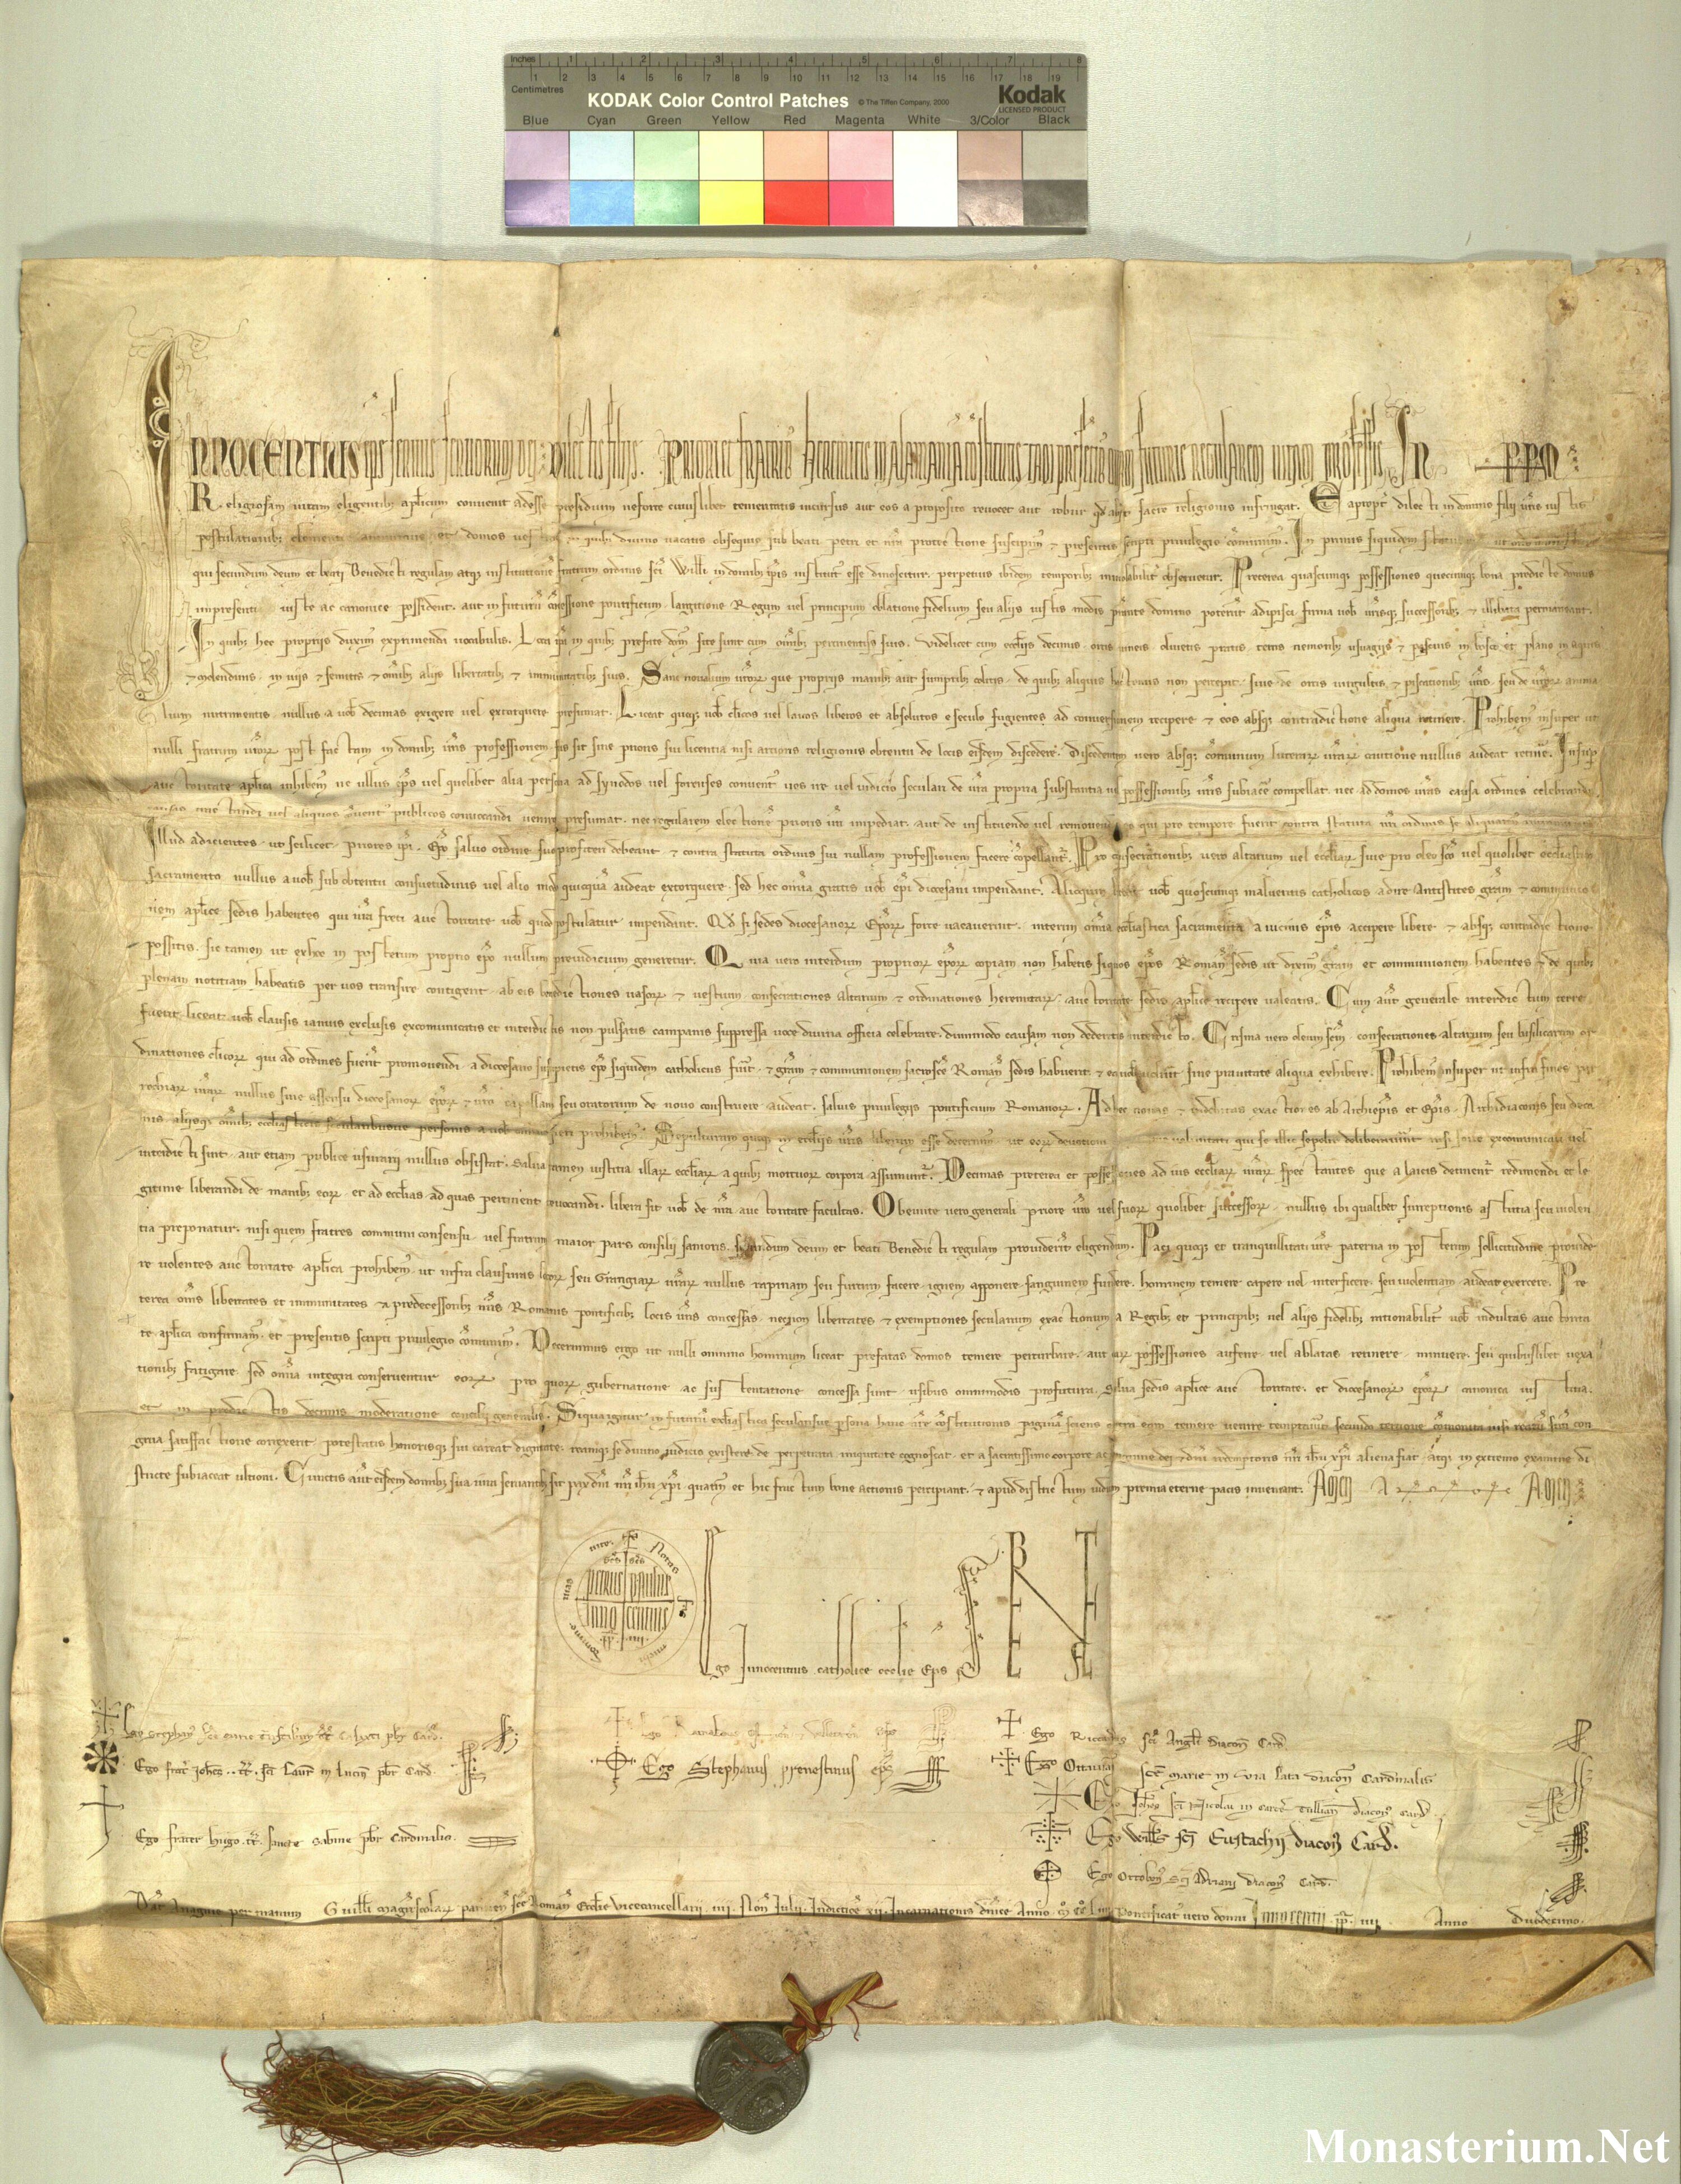 Inches 1 2 3 4 5 6 7 8
Centimetres 1 2 3 4 5 6 7 8 9 10 11 12 13 14 15 16 17 18 19
KODAK Color Control Patches © The Tiffen Company, 2000 Kodak
LICENSED PRODUCT
Blue Cyan Green Yellow Red Magenta White 3/Color Black
INNOCENTIUS eps seruus seruorum dei dilectis filiis Priori et fratrib Heremitis in alamania tam presentib futuris regularem uitam professis In PPM
Religiosam uitam eligentib aplicum conuenit adesse presidium ne forte cuiuslibet temeritatis incursus aut eos a proposito reuocet aut robur absit sacre religionis infringat. Eapropt dilecti in domino filij uris iustis
postulationib clementer et domos diuino uacatis obsequio sub beati Petri et nra protectione suscipim & presentis scripti priuilegio comunim. In primis siquidem
qui secundum deum et beati Benedicti regulam atq institutione fratrum ordinis sci Willi in domib ipsis institut esse dinoscitur. perpetuis ibidem temporib inuiolabilit obseruetur. Preterea quascumq possessiones quecumq bona predicte domus
inpresenti iuste ac canonice possident. aut in futuru concessione pontificum. largitione Regum uel principum oblatione fidelium seu alijs iustis modis prstante domino poterit adipisci firma uob urisq successorib & illibata permaneant.
In quib hec proprijs duxim exprimenda uocabulis. Loca ipa in quib prefate dom site sunt cum omib pertinentijs suis. videlicet cum eccliis decimis ortis uineis oliuetis pratis terris nemorib usuagijs & pascuis in bosco et plano in aquis
& molendinis. in uijs & semitis & omib alijs libertatib & immunitatib suis. Sane noualium uror que proprijs manib aut sumptib colitis. de quib aliquis hactenus non percepit. siue de ortis uirgultis & piscationib uris seu de uror anima
lium nutrimentis nullus a uob decimas exigere uel extorquere presumat. Liceat quoq uob clicos uel laicos liberos et absolutos e seculo fugientes ad conuersionem recipere & eos absq contradictione aliqua retinere. Prohibem insuper ut
nulli fratrum uror post factam in domib uris professionem fas sit sine prioris sui licentia nisi artioris religionis obtentu de locis eisdem discedere. Discedentem uero absq comunium litterar urar cautione nullus audeat retine. Insup
auctoritate aplica inhibem ne ullus eps uel quelibet alia persona ad synodos uel forenses conuent uos ire uel iudicio seculari de ura propria substantia uel possessionib uris subiace compellat. nec ad domos uras causa ordines celebrandi
uel aliquos publicos conuocandi uenire presumat. nec regularem electione prioris uri impediat. aut de instituendo uel remouendo qui pro tempore fuerit contra statuta
Illud adicientes ut scilicet priores ipi. Epo saluo ordine suo profiteri debeant & contra statuta ordinis sui nullam professionem facere copellant. Pro consecrationib uero altarium uel eccliar siue pro oleo sco uel quolibet eccliastico
sacramento nullus a uob sub obtentu consuetudinis uel alio modo quicqua audeat extorquere. sed hec omia gratis uob epi diocesani impendant. Alioquin liceat uob quoscumq malueritis catholicos adire Antistites gram & communio
nem aplice sedis habentes qui nra freti auctoritate uob quod postulatur impendant. Qd si sedes diocesanor Epor forte uacauerint. interim omia eccliastica sacramenta a uicinis epis accipere libere & absq contradictione
possitis. sic tamen ut ex hoc in posterum proprio epo nullum preiudicium generetur. Quia uero interdum proprior epor copiam non habetis siquos epos Romane sedis ut dixim gram et communionem habentes & de quib
plenam notitiam habeatis per uos transire contigerit ab eis benedictiones uasor & uestium. consecrationes altarium & ordinationes heremitar auctoritate sedis aplice recipere ualeatis. Cum aut generale interdictum terre
fuerit liceat uob clausis ianuis exclusis excomunicatis et interdictis non pulsatis campanis suppressa uoce diuina officia celebrare. dummodo causam non dederitis interdicto. Crisma uero oleum scm. consecrationes altarium seu basilicarum or
dinationes clicor qui ad ordines fuerit promouendi a diocesano suscipietis epo siquidem catholicus fuit. & gram & communionem sacrosce Romane sedis habuerit & ea uob uoluit sine prauitate aliqua exhibere. Prohibem insuper ut infra fines par
rochiar urar nullus sine assensu diocesanor epor & uro capellam seu oratorium de nouo construere audeat. saluis priuilegijs pontificum Romanor. Ad hec nouas & indebitas exactiones ab Archiepis et Epis Archidiaconis seu deca
nis alijsq omib eccliasticis secularibusue personis a uob prohibem. Sepulturam quoq in ecclijs uris liberam esse decernim ut eor deuotioni uoluntati qui se illic sepeliri deliberauerint nisi forte excomunicati uel
interdicti sint aut etiam publice usurarij nullus obsistat. salua tamen iustitia illar eccliar a quib mortuor corpora assumunt. Decimas preterea et possessiones ad ius eccliar urar spectantes que a laicis detinent redimendi et le
gitime liberandi de manib eor et ad ecclias ad quas pertinent reuocandi. libera sit uob de nra auctoritate facultas. Obeunte uero generali priore uro uel suor quolibet successor nullus ibi qualibet surreptionis astutia seu uiolen
tia preponatur. nisi quem fratres communi consensu uel fratrum maior pars consilij sanioris secundum deum et beati Benedicti regulam prouiderit eligendum. Paci quoq et tranquillitati ure paterna in posterum sollicitudine prouide
re uolentes auctoritate aplica prohibem ut infra clausuras locor seu Grangiar urar nullus rapinam seu furtum facere ignem apponere sanguinem fundere. hominem temere capere uel interficere. seu uiolentiam audeat exercere. Pre
terea oms libertates et immunitates a predecessorib nris Romanis pontificib locis uris concessas. necnon libertates & exemptiones secularium exactionum a Regib et principib uel alijs fidelib rationabilit uob indultas auctorita
te aplica confirmam. et presentis scripti priuilegio comunim. Decernimus ergo ut nulli omnino hominum liceat prefatas domos temere perturbare. aut ear possessiones auferre uel ablatas retinere minuere. seu quibuslibet uexa
tionib fatigare. sed omia integra conseruentur eor pro quor gubernatione ac sustentatione concessa sunt usibus omnimodis profutura. salua sedis aplice auctoritate. et diocesanor epor canonica iustitia.
et in predictis decimis moderatione concilij generalis. Siqua igitur in futuru eccliastica secularisue psona hanc nre costitutionis pagina sciens contra eam temere uenire temptauit secundo tertioue comonita nisi reatu suu con
grua satisfactione correxerit potestatis honorisq sui careat dignitate. reamq se diuino iudicio existere de perpetrata iniquitate cognoscat. et a sacratissimo corpore ac sanguine dei & dni redemptoris nri ihu xpi aliena fiat atq in extremo examine di
stricte subiaceat ultioni. Cunctis aut eisdem domib sua iura seruantib sit pax dni nri ihu xpi quatin et hic fructum bone actionis percipiant. & apud districtum iudicem premia eterne pacis inueniant. Amen A Amen
Notas michi domine uias uite
scs Petrus scs Paulus
Innocentius pp iiii
Ego Innocentius catholice ecclie Eps
Ego Stephan sce marie card
Ego frat Johes tt sci Laur in lucin pbr Card
Ego frater hugo tt sancte sabine pbr Cardinalis
Ego Stephanus prenestinus eps
Ego Riccardus sci Angli diacon Card
Ego Octauian sce marie in uia lata diacon Cardinalis
Ego Johes sci Nicolai in carce tullian diacon card
Ego Will sci Eustachij diacon Card.
Ego Ottobon sci Adriani diacon Card.
Dat Anagnie per manum Guilli magistscolar parmen sce Romane Ecclie vicecancellarij iiij Non Julij Indictoe xii Incarnationis dnice Anno Pontificat uero domni Innocentij pp iiij Anno Duodecimo.
Monasterium.Net